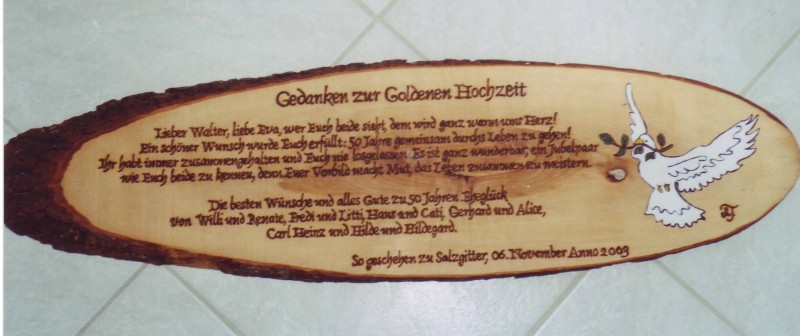 Gedanken zur Goldenen Hochzeit
Lieber Walter, liebe Eva, wer Euch beide sieht, dem wird ganz warm uns Herz!
Ein schöner Wunsch wurde Euch erfüllt: 50 Jahre gemeinsam durchs Leben zu gehen!
Ihr habt immer zusammengehalten und Euch nie losgelassen. Es ist ganz wunderbar, ein Jubelpaar
wie Euch beide zu kennen, denn Euer Vorbild macht Mut, das Leben zusammen zu meistern.
Die besten Wünsche und alles Gute zu 50 Jahren Eheglück
von Willi und Renate, Fredi und Litti, Hans and Cati, Gerhard und Alice,
Carl Heinz und Hilde und Hildegard.
So geschehen zu Salzgitter, 06. November Anno 2003